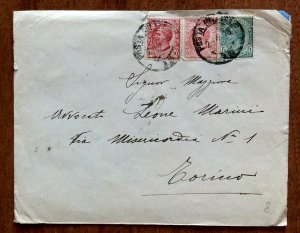 POSTA
Signor Maggiore
Avvocato Leone Marini
Via Misericordia No 1
Torino
8